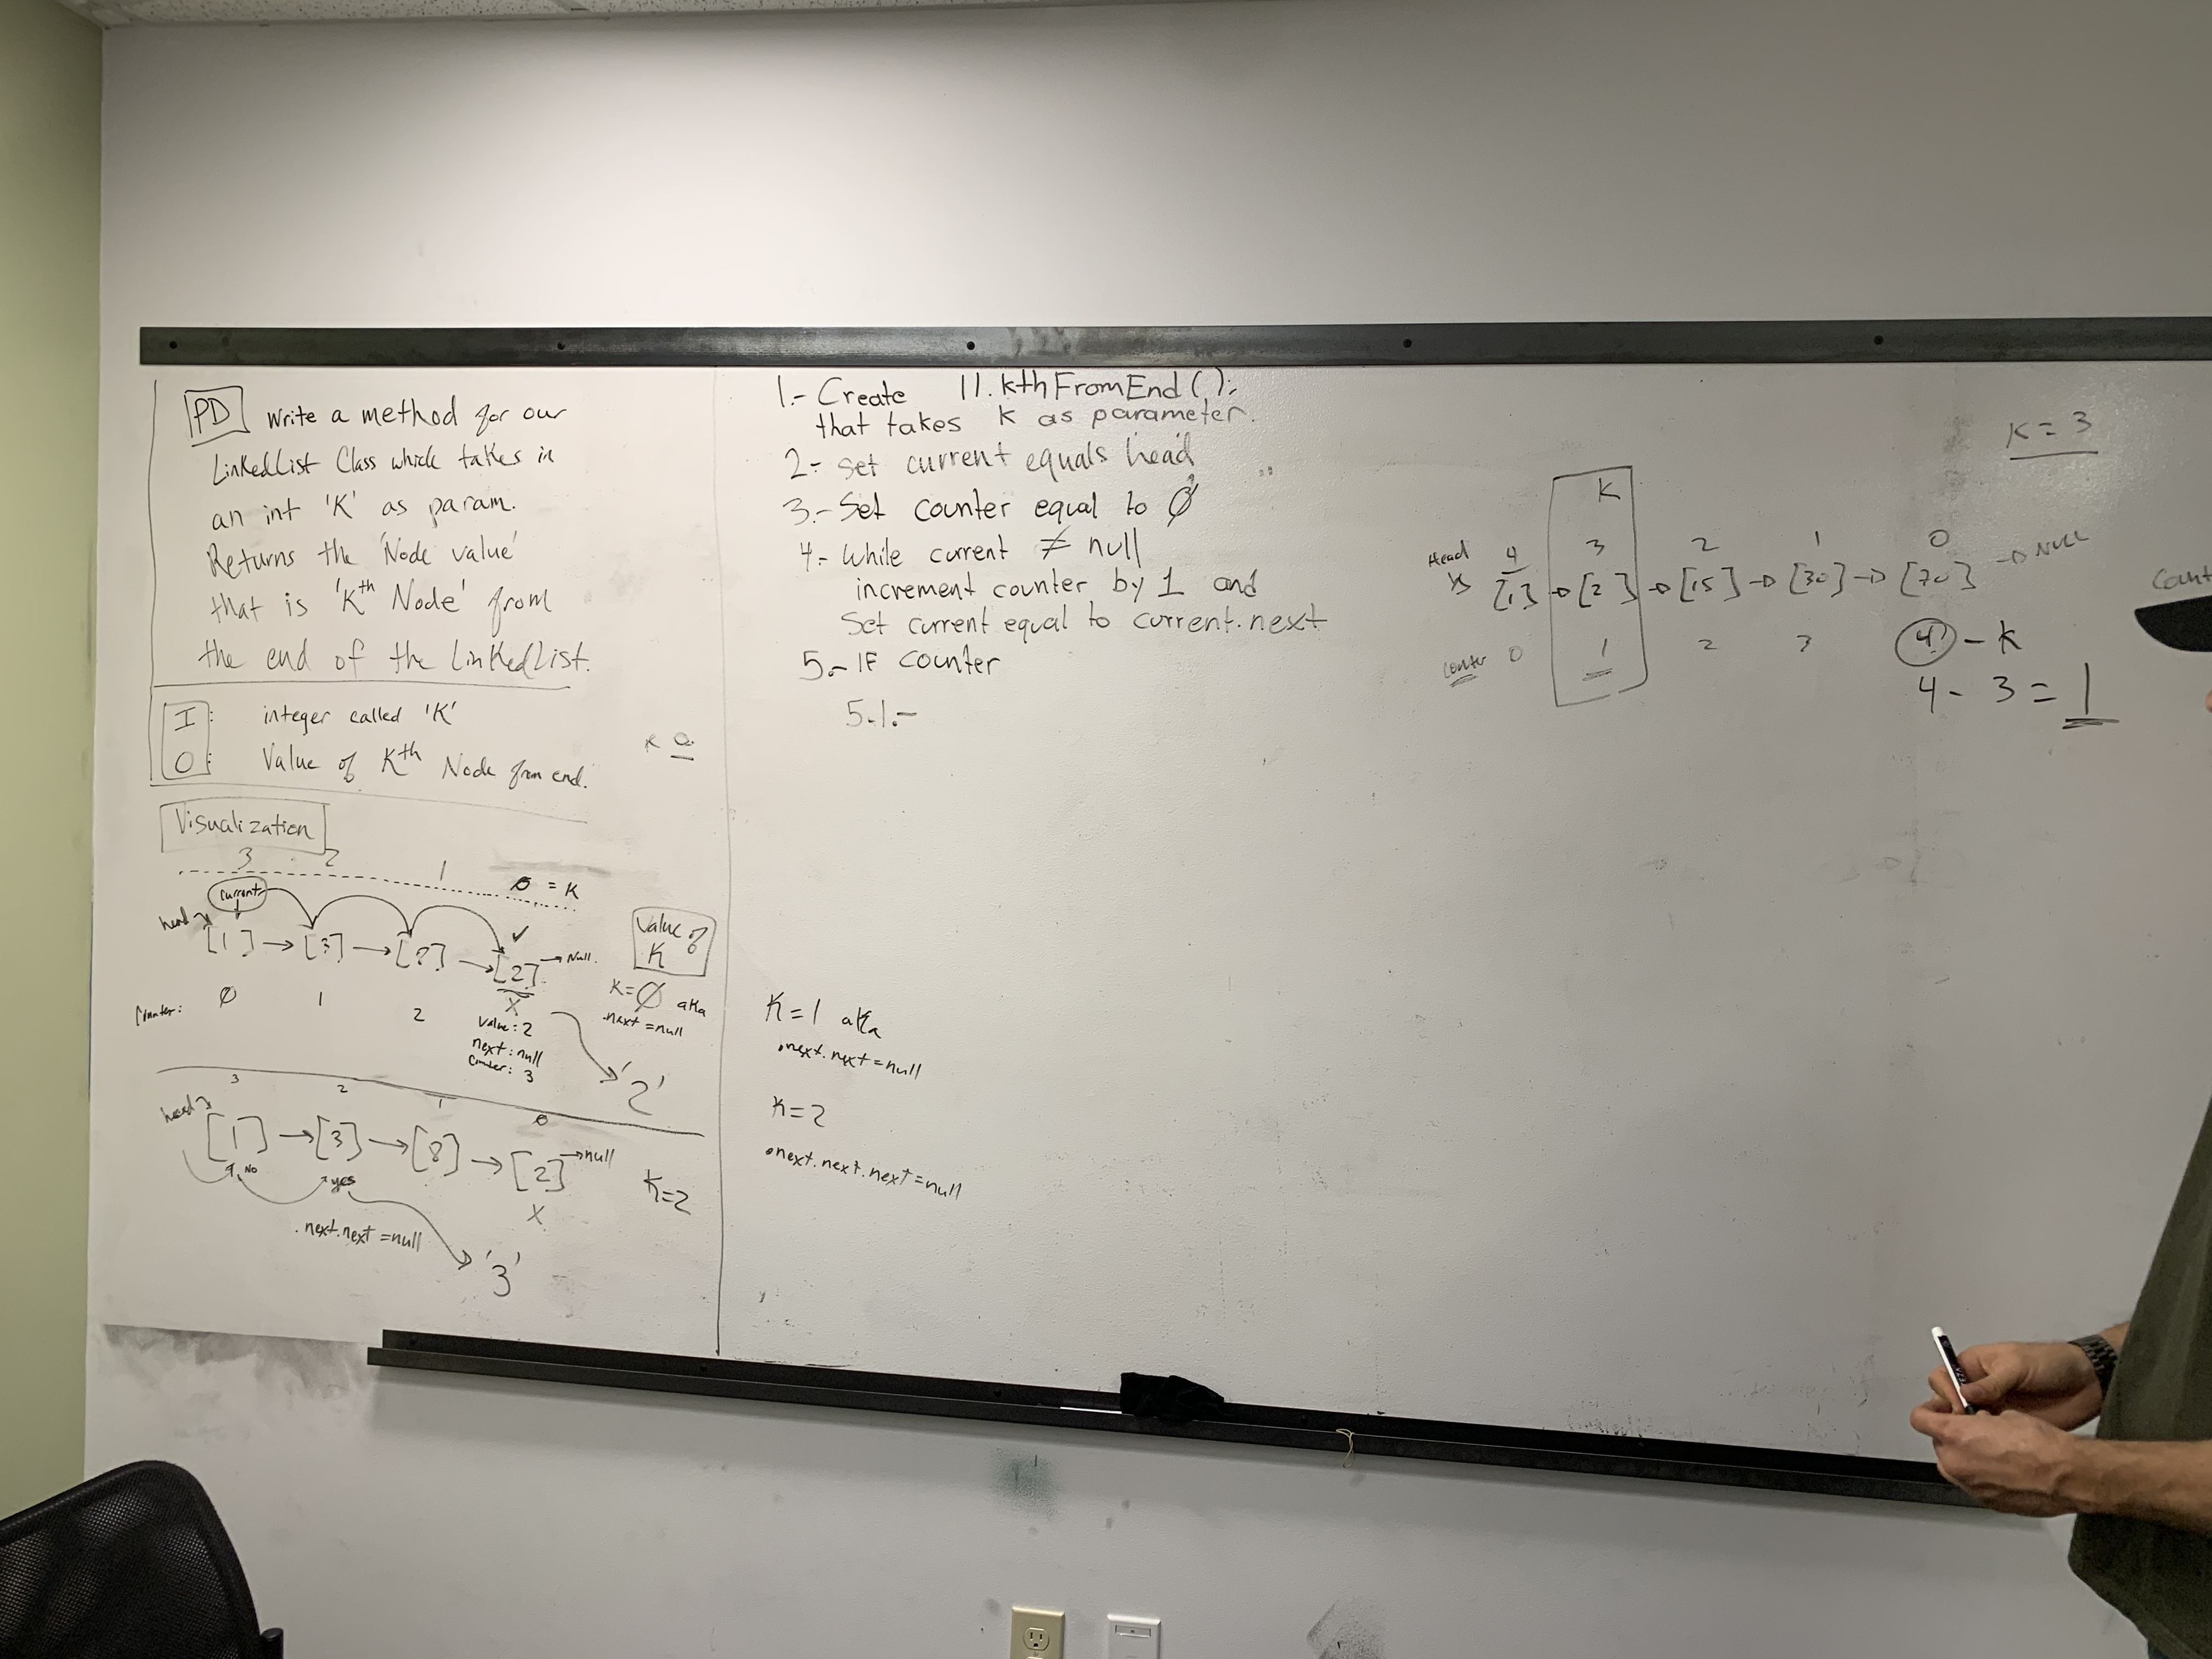 PD Write a method for our
LinkedList Class which takes in
an int 'K' as param.
Returns the 'Node value'
that is 'Kth Node' from
the end of the LinkedList.
I: integer called 'K'
O: Value of Kth Node from end.
Visualization
3 2 1 0 = K
current
head
[1] → [3] → [8] → [2] → Null.
✓
Counter: 0 1 2
X
value: 2
next: null
Counter: 3
'2'
Value of
K
K=0 aka
.next = null
3 2 1 0
head
[1] → [3] → [8] → [2] → null
No
yes
X
K=2
.next.next = null
'3'
1.- Create ll.kthFromEnd();
that takes K as parameter.
2- set current equals head
3.- Set counter equal to 0
4- While current ≠ null
increment counter by 1 and
Set current equal to current.next
5.- IF counter
5.1.-
K=1 aka
.next.next = null
K=2
.next.next.next = null
K = 3
K
Head 4 3 2 1 0
[1] → [2] → [15] → [30] → [70] → NULL
counter 0 1 2 3 4 - K
4 - 3 = 1